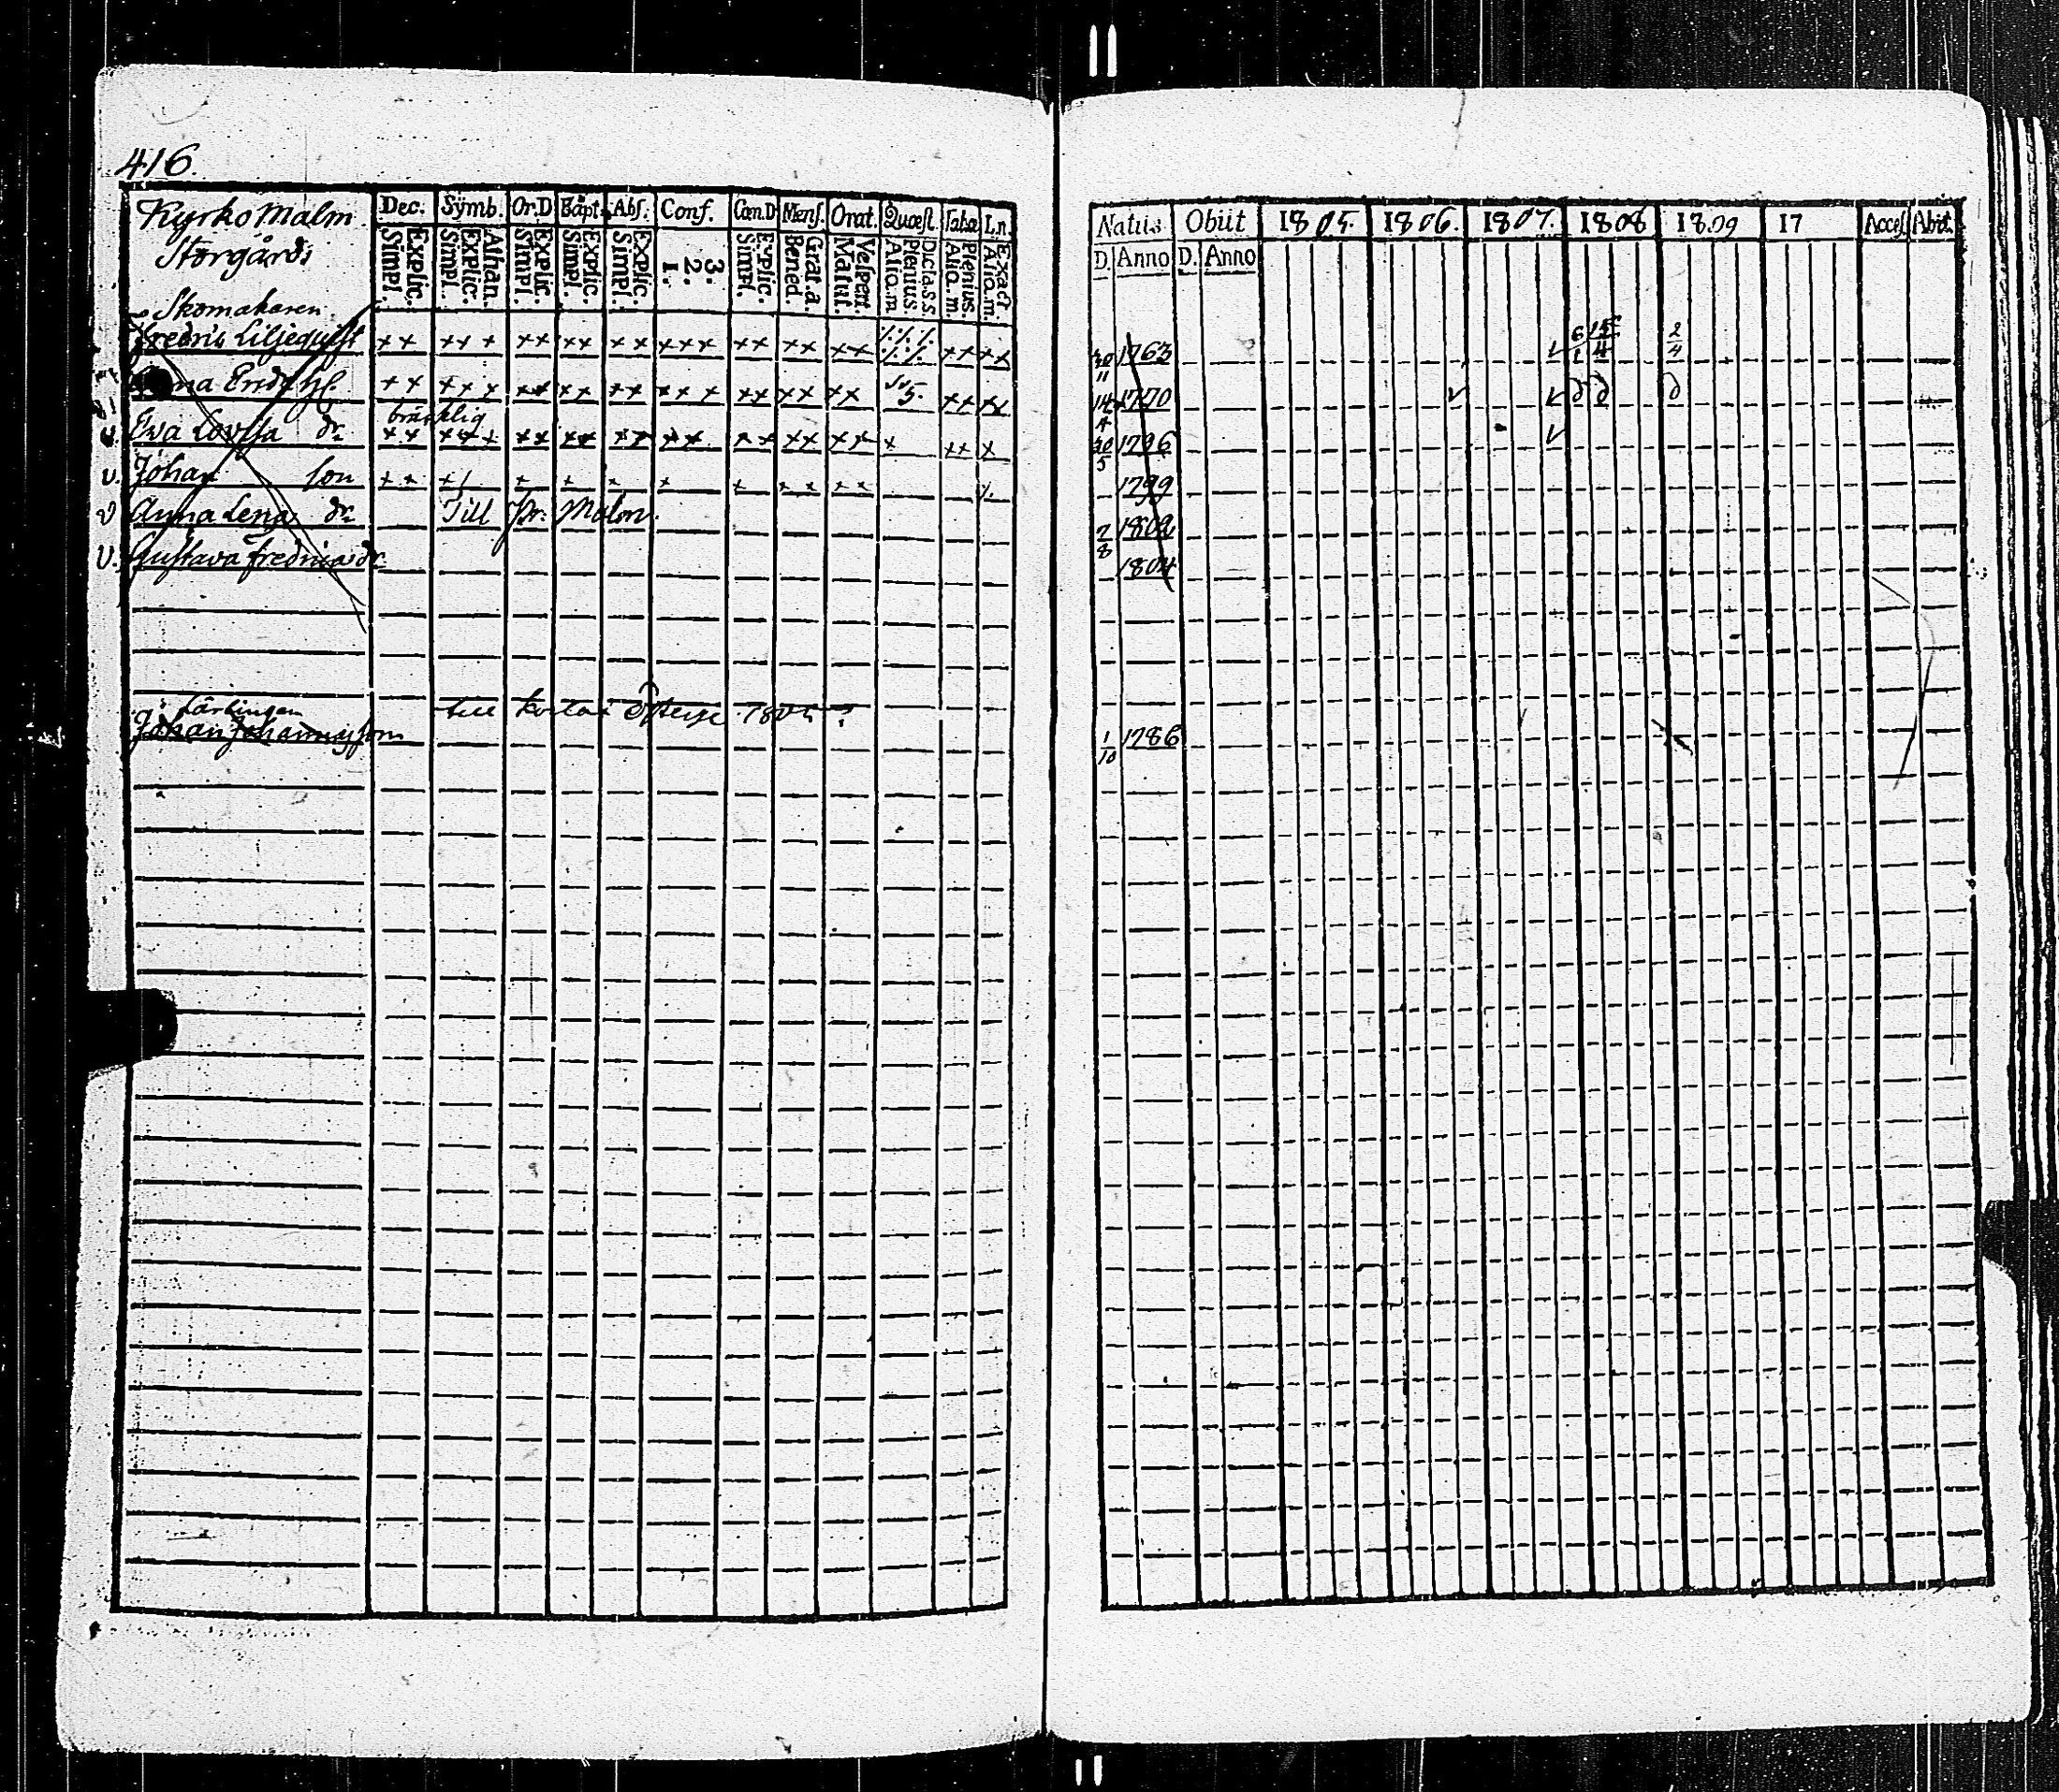 416.
Kyrko Malm Dec. Symb. Or.D Bapt. Abs. Conf. Cœn.D Mens. Orat. Quæst. Taba L.n.
Storgårds Simpl. Explic. Simpl. Explic. Athan. Simpl. Explic. Simpl. Explic. Simpl. Explic. 1. 2. 3. Simpl. Explic. Bened. Grat.a. Matut. Vespert. Alio.m Plenius. Dicta.s.s. Alio.m Plenius Alio.m. Exact
Skomakaren
Fredric Liljequist ×× ××× ×× ×× ×× ××× ×× ×× ×× ×× ××
Erics h. ×× ××× ×× ×× ×× ××× ×× ×× ×× 5. ×× ××
bräcklig
Ewa Lovisa dr. ×× ××× ×× ×× ×× ×× ×× ×× ×× × ×× ×
v. Johan son ×× × × × × × × ×× ××
v Anna Lena dr. Till Malm.
v. Gustava Fredrica dr.
Lärlingen
Johan Johansson
Natus Obiit 1805. 1806. 1807. 1808 1809 17 Acces. Abit.
D. Anno D. Anno
30/11 1763 2/4
14/4 1770
30/5 1796
1799
7/8 1802
1804
1/10 1786